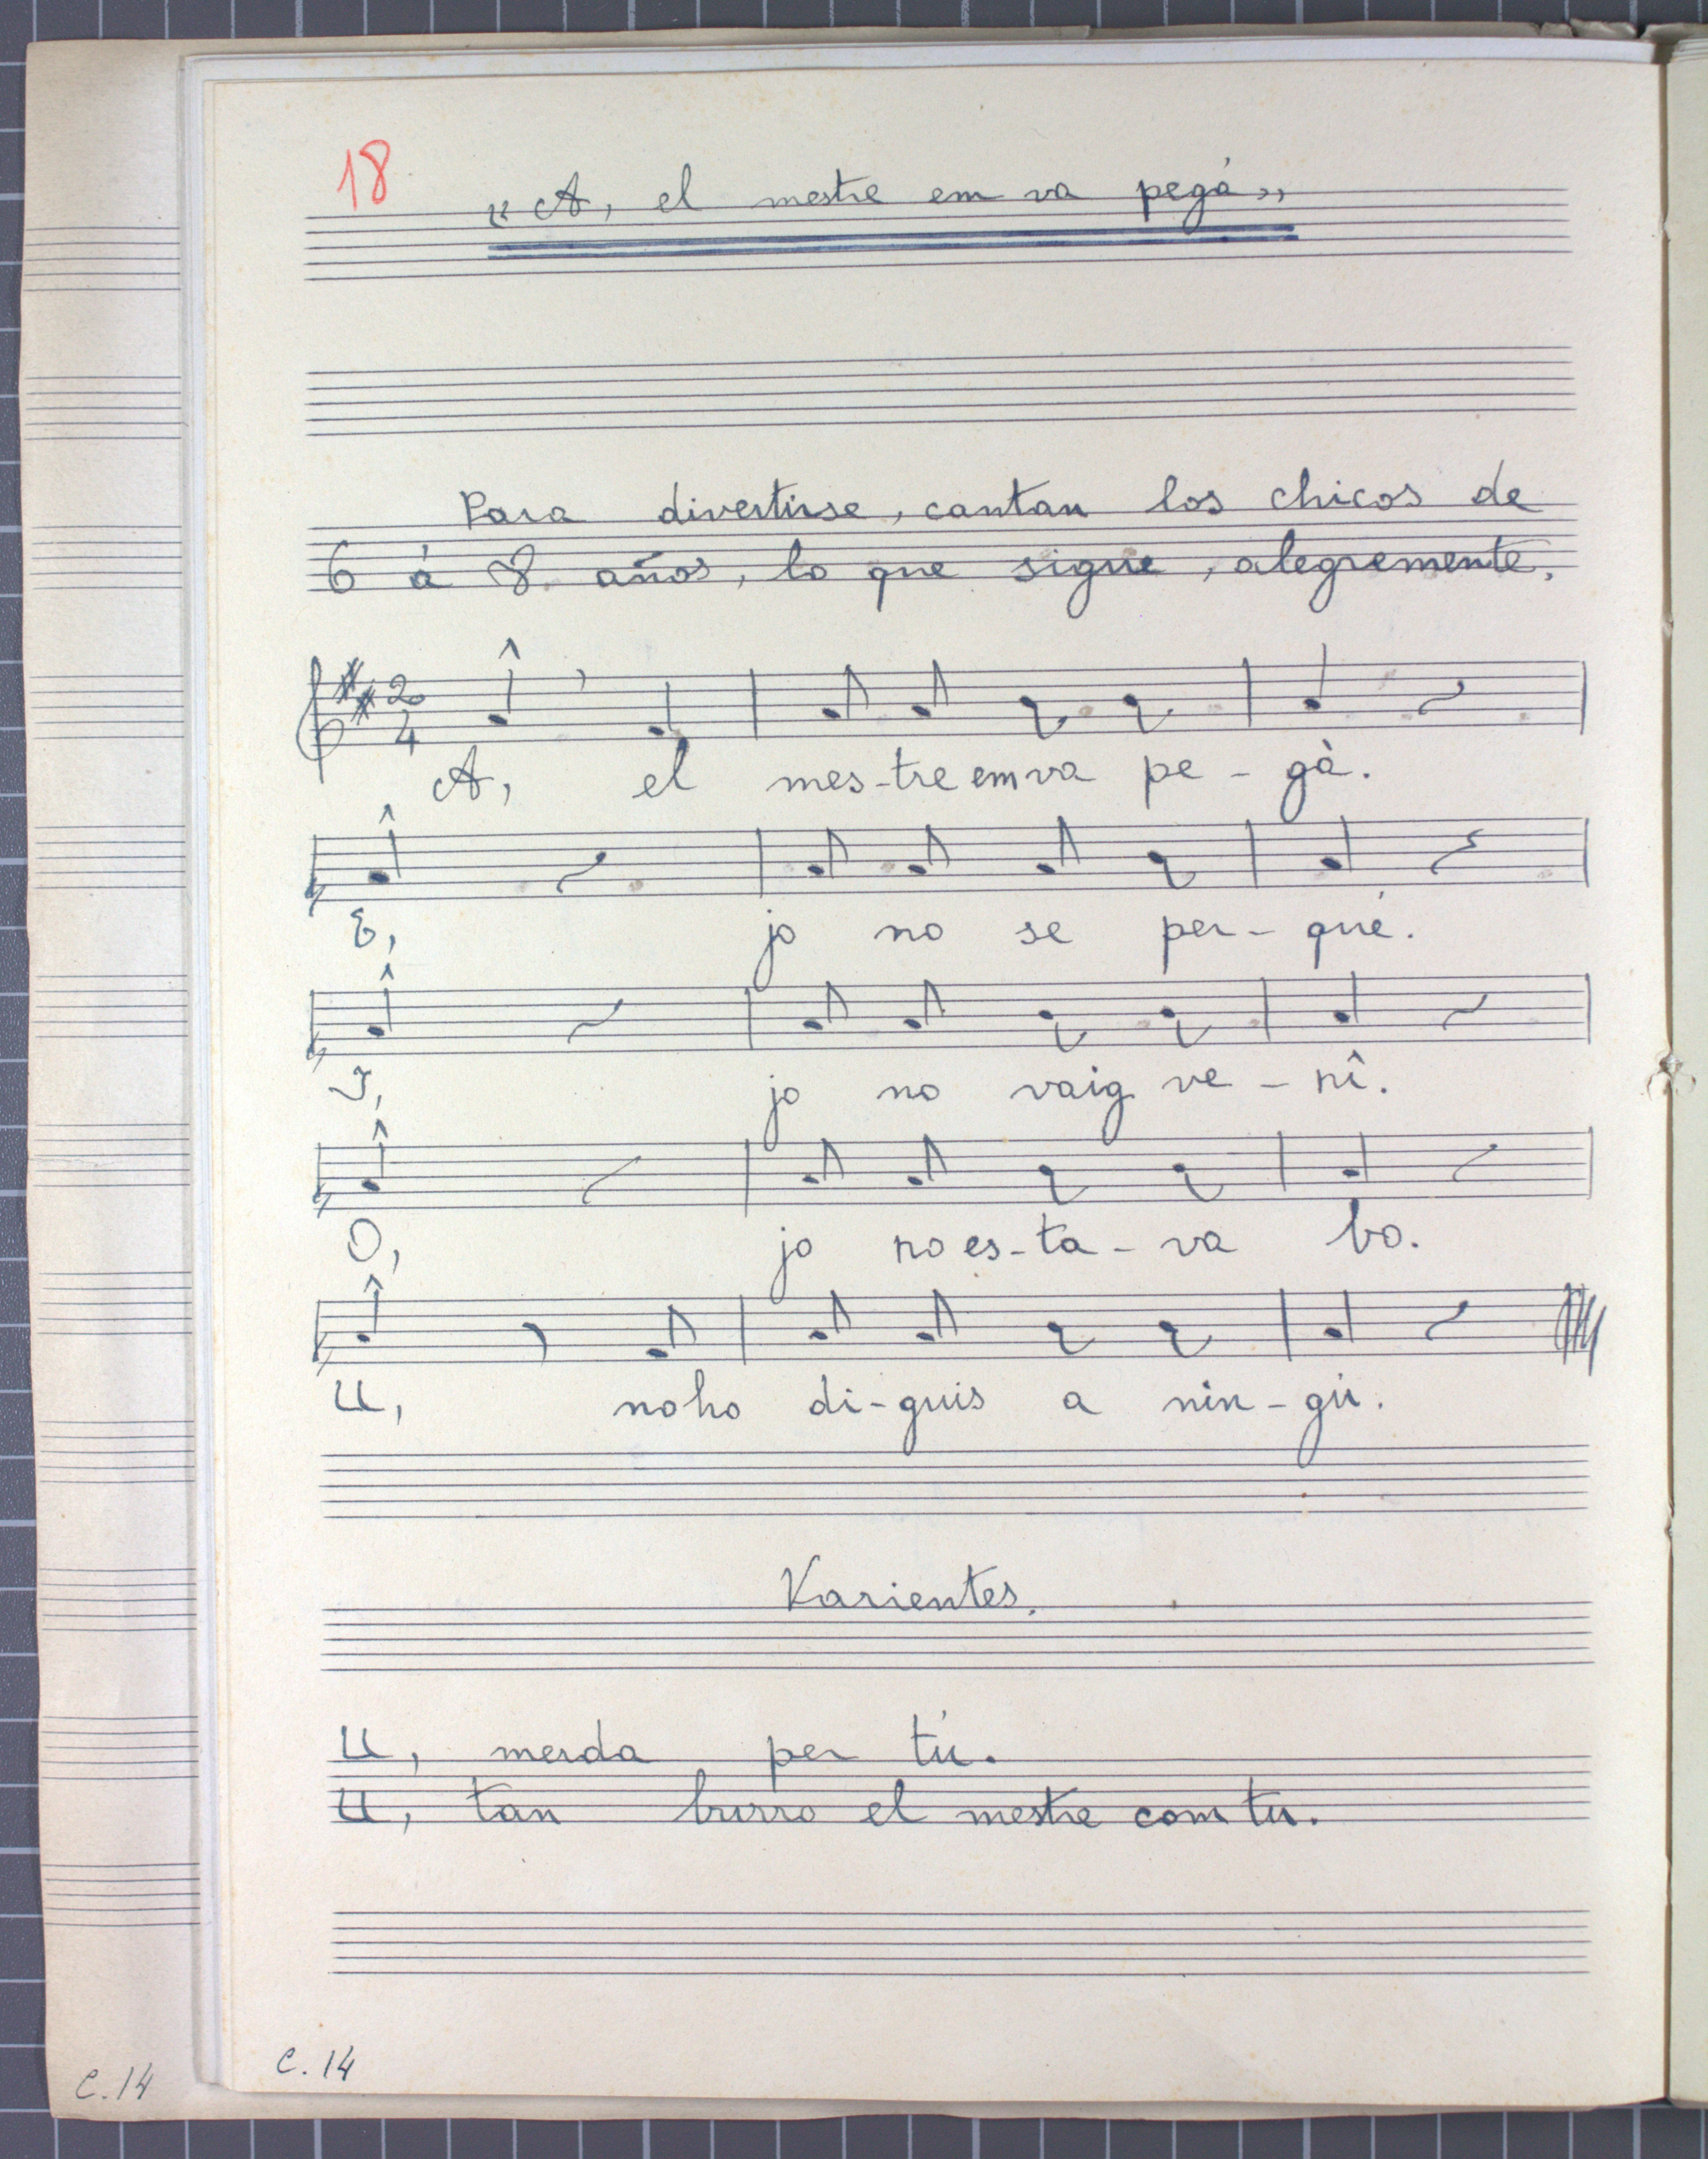 18
"A, el mestre em va pegá"
Para divertirse, cantan los chicos de
6 á 8 años, lo que sigue, alegremente.
2
4
A, el mes-tre em va pe-gà.
E, jo no se per-qué.
I, jo no vaig ve-nî.
O, jo no es-ta-va bo.
U, no ho di-guis a nin-gú.
Varientes.
U, merda per tú.
U, tan burro el mestre com tu.
C.14
C.14